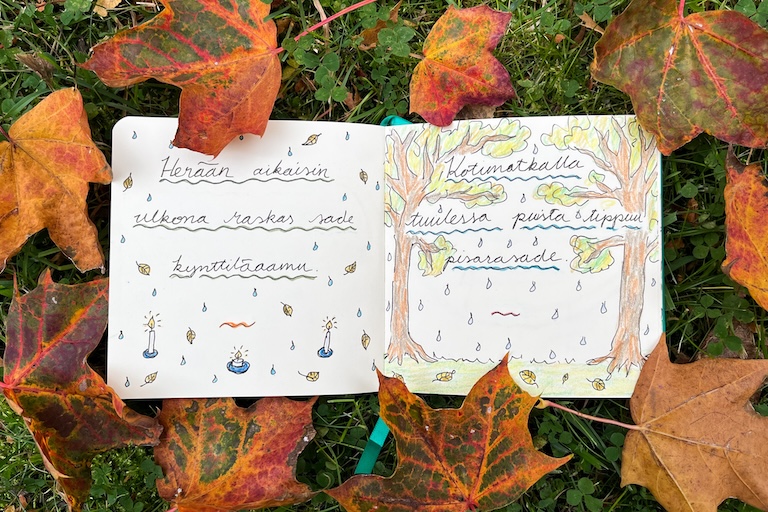 Herään aikaisin
ulkona raskas sade
kynttiläaamu.
Kotimatkalla
tuulessa puista tippuu
pisarasade.